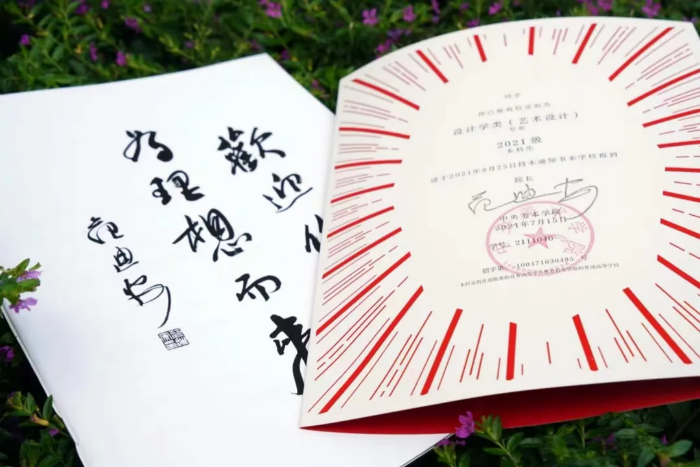 歡迎
为理想而来
范迪安
同学
你已被我院录取为
设计学类（艺术设计）
专业
2021 级
本科生
请于2021年8月25日持本通知书来学校报到
院长
范迪安
中央美术学院
2021年7月15日
学号：2111046
100471030495 号